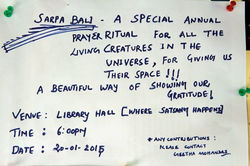 SARPA BALI - A SPECIAL ANNUAL
PRAYER RITUAL FOR ALL THE
LIVING CREATURES IN THE
UNIVERSE, FOR GIVING US
THEIR SPACE!!!
A BEAUTIFUL WAY OF SHOWING OUR
GRATITUDE!
VENUE: LIBRARY HALL [WHERE SATSANG HAPPENS]
TIME : 6:00PM
DATE : 20-01-2015
* ANY CONTRIBUTIONS:
PLEASE CONTACT
GEETHA MOHANDAS